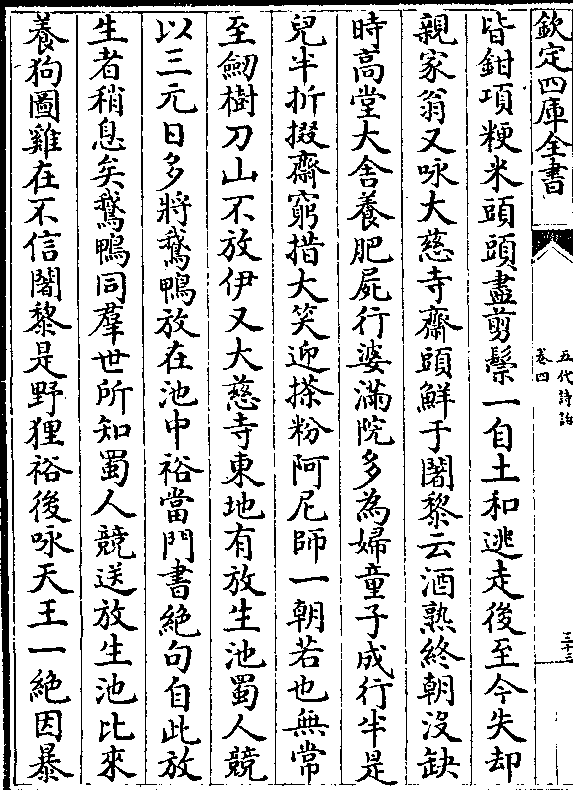 欽定四庫全書
五代詩話
卷四
三十三
皆鉗項粳米頭頭盡剪鬃一自土和逃走後至今失却
親家翁又咏大慈寺齋頭鮮于闍黎云酒熟終朝沒缺
時高堂大舍養肥屍行婆滿院多為婦童子成行半是
兒半折掇齋窮措大笑迎搽粉阿尼師一朝若也無常
至劒樹刀山不放伊又大慈寺東地有放生池蜀人競
以三元日多將鵞鴨放在池中裕當門書絶句自此放
生者稍息矣鵞鴨同羣世所知蜀人競送放生池比來
養狗圖雞在不信闍黎是野狸裕後咏天王一絶因暴